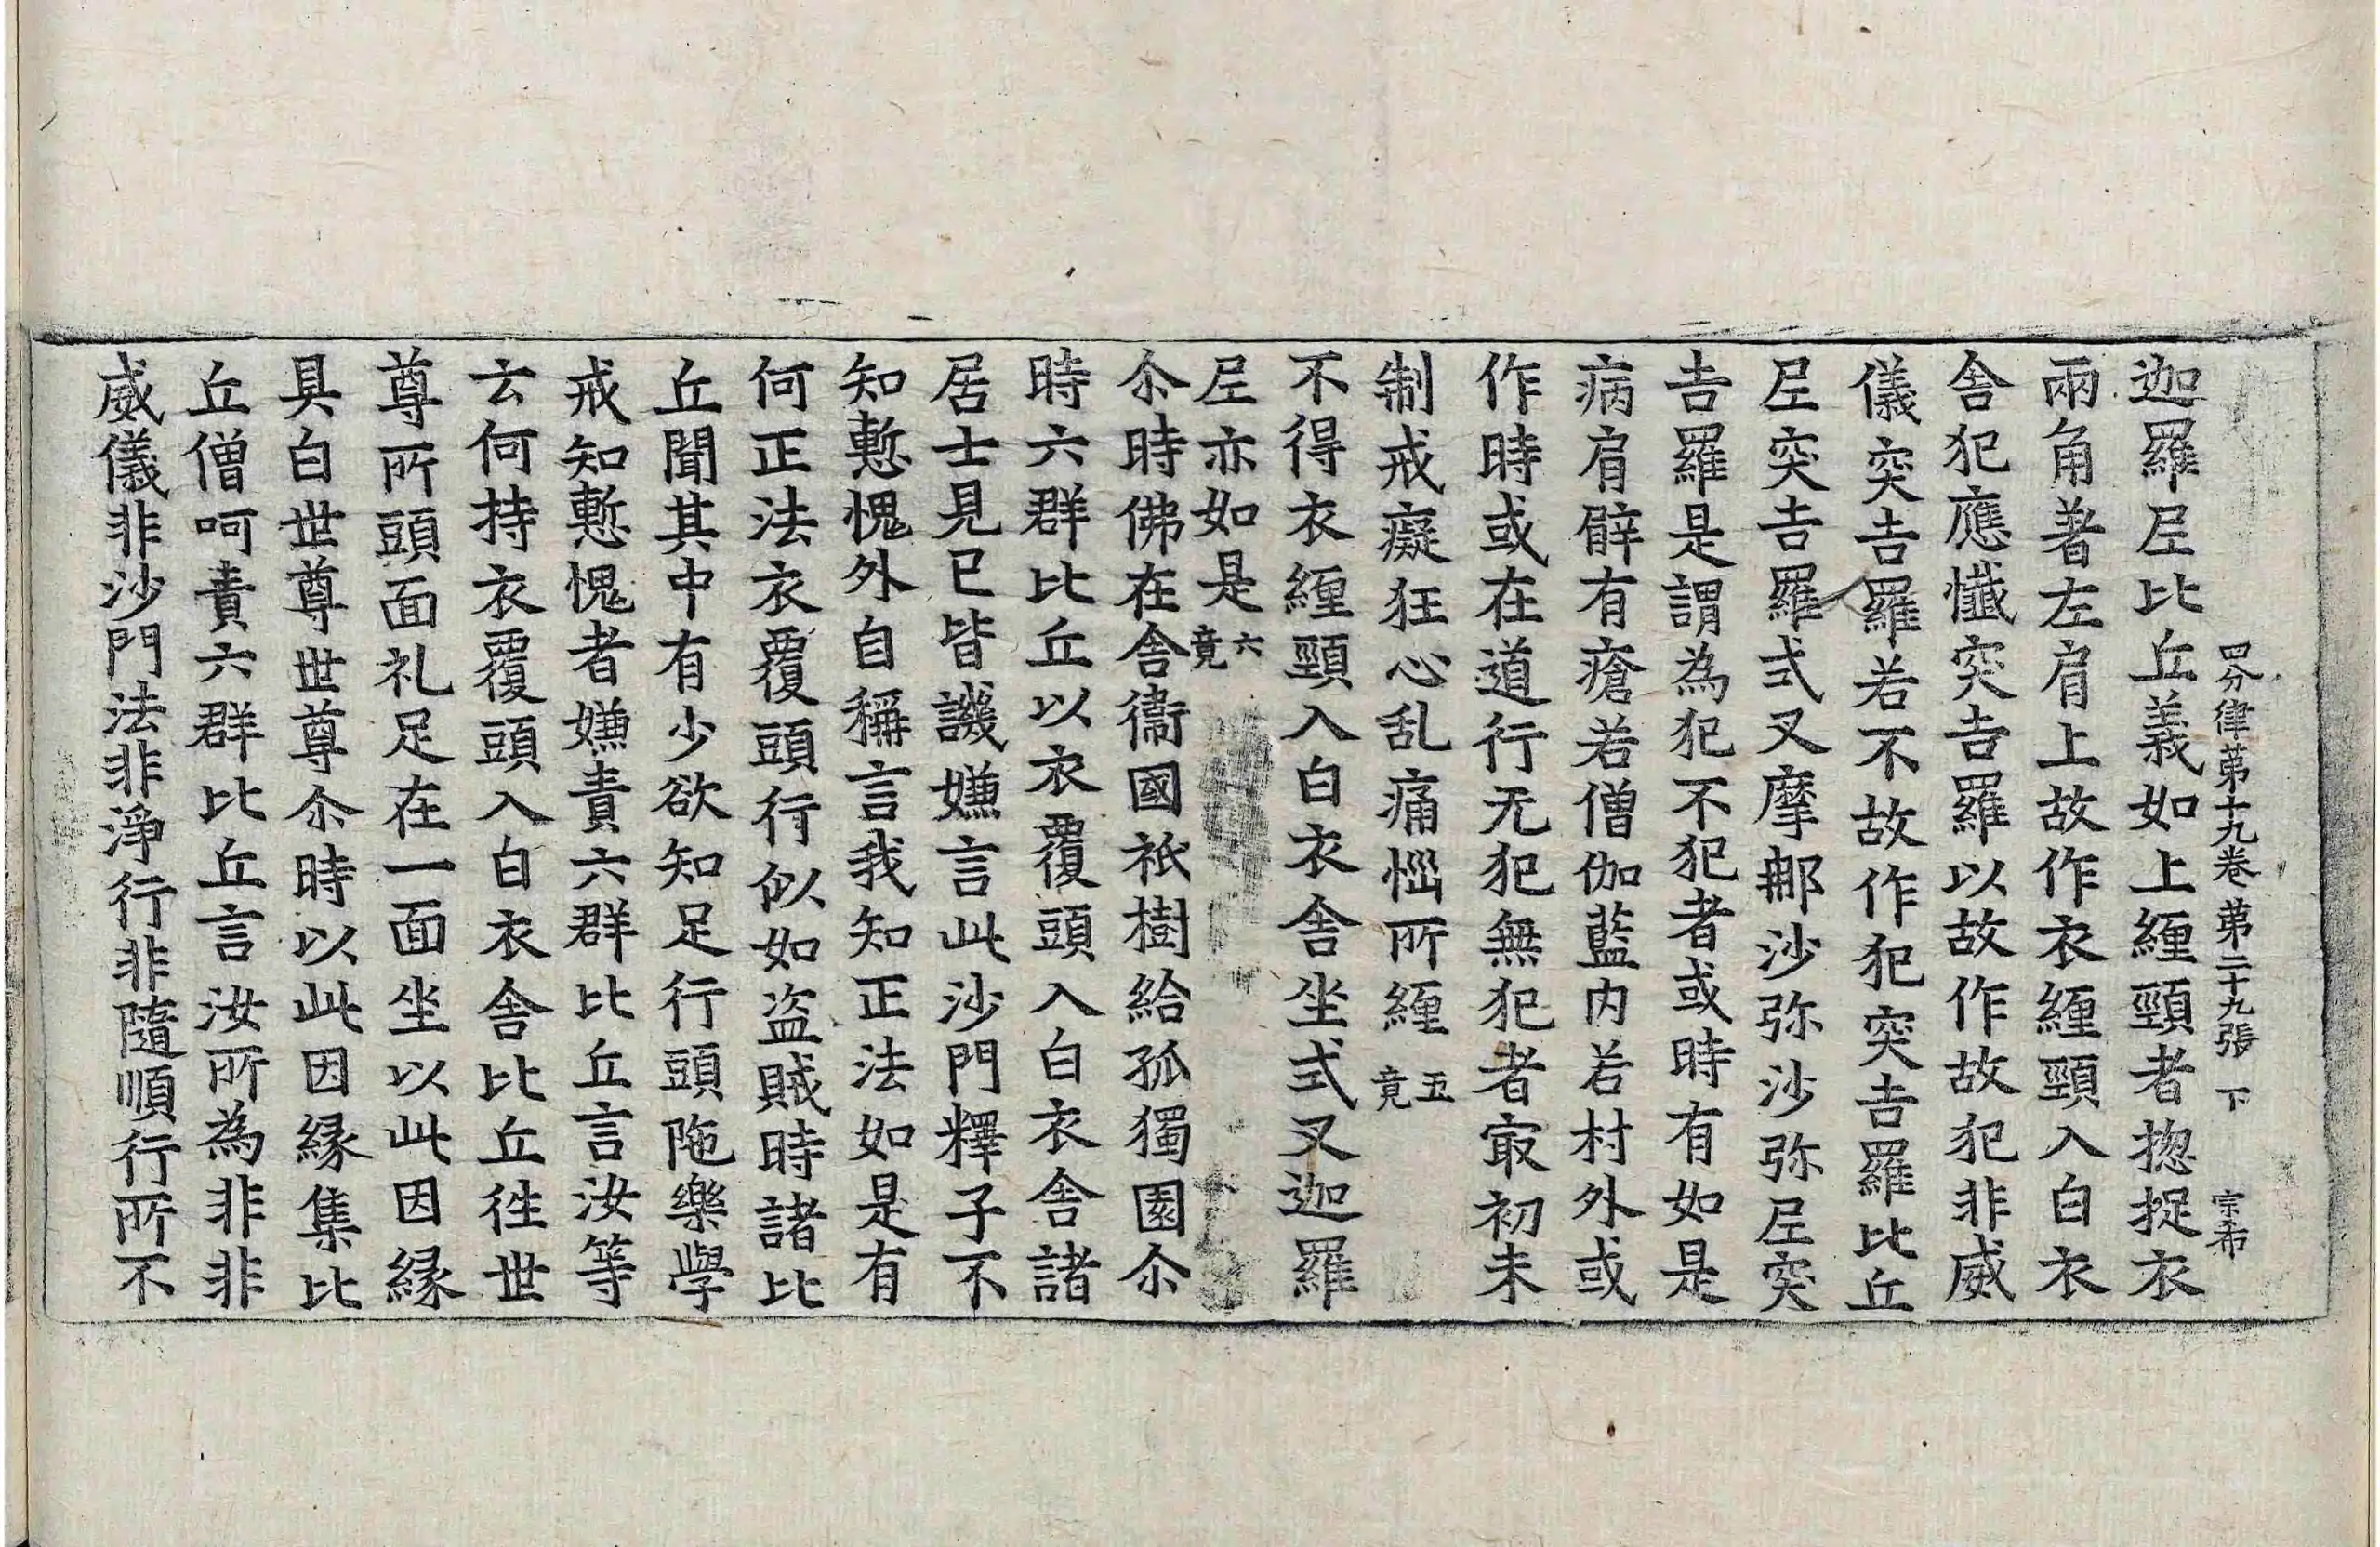 四分律苐十九卷 苐二十九張 下 宗希
迦羅尼比丘義如上纏頸者揔捉衣
兩角著左肩上故作衣纏頸入白衣
舍犯應懺突吉羅以故作故犯非威
儀突吉羅若不故作犯突吉羅比丘
尼突吉羅式叉摩那沙弥沙弥尼突
吉羅是謂為犯不犯者或時有如是
病肩臂有瘡若僧伽藍内若村外或
作時或在道行无犯無犯者冣初未
制戒癡狂心乱痛惱所纏 五竟
不得衣纏頸入白衣舍坐式叉迦羅
尼亦如是 六竟
尒時佛在舍衞國祇樹給孤獨園尒
時六群比丘以衣覆頭入白衣舍諸
居士見已皆譏嫌言此沙門釋子不
知慙愧外自稱言我知正法如是有
何正法衣覆頭行似如盜賊時諸比
丘聞其中有少欲知足行頭陁樂學
戒知慙愧者嫌責六群比丘言汝等
云何持衣覆頭入白衣舍比丘徃世
尊所頭面礼足在一面坐以此因縁
具白世尊世尊尒時以此因縁集比
丘僧呵責六群比丘言汝所為非非
威儀非沙門法非淨行非隨順行所不